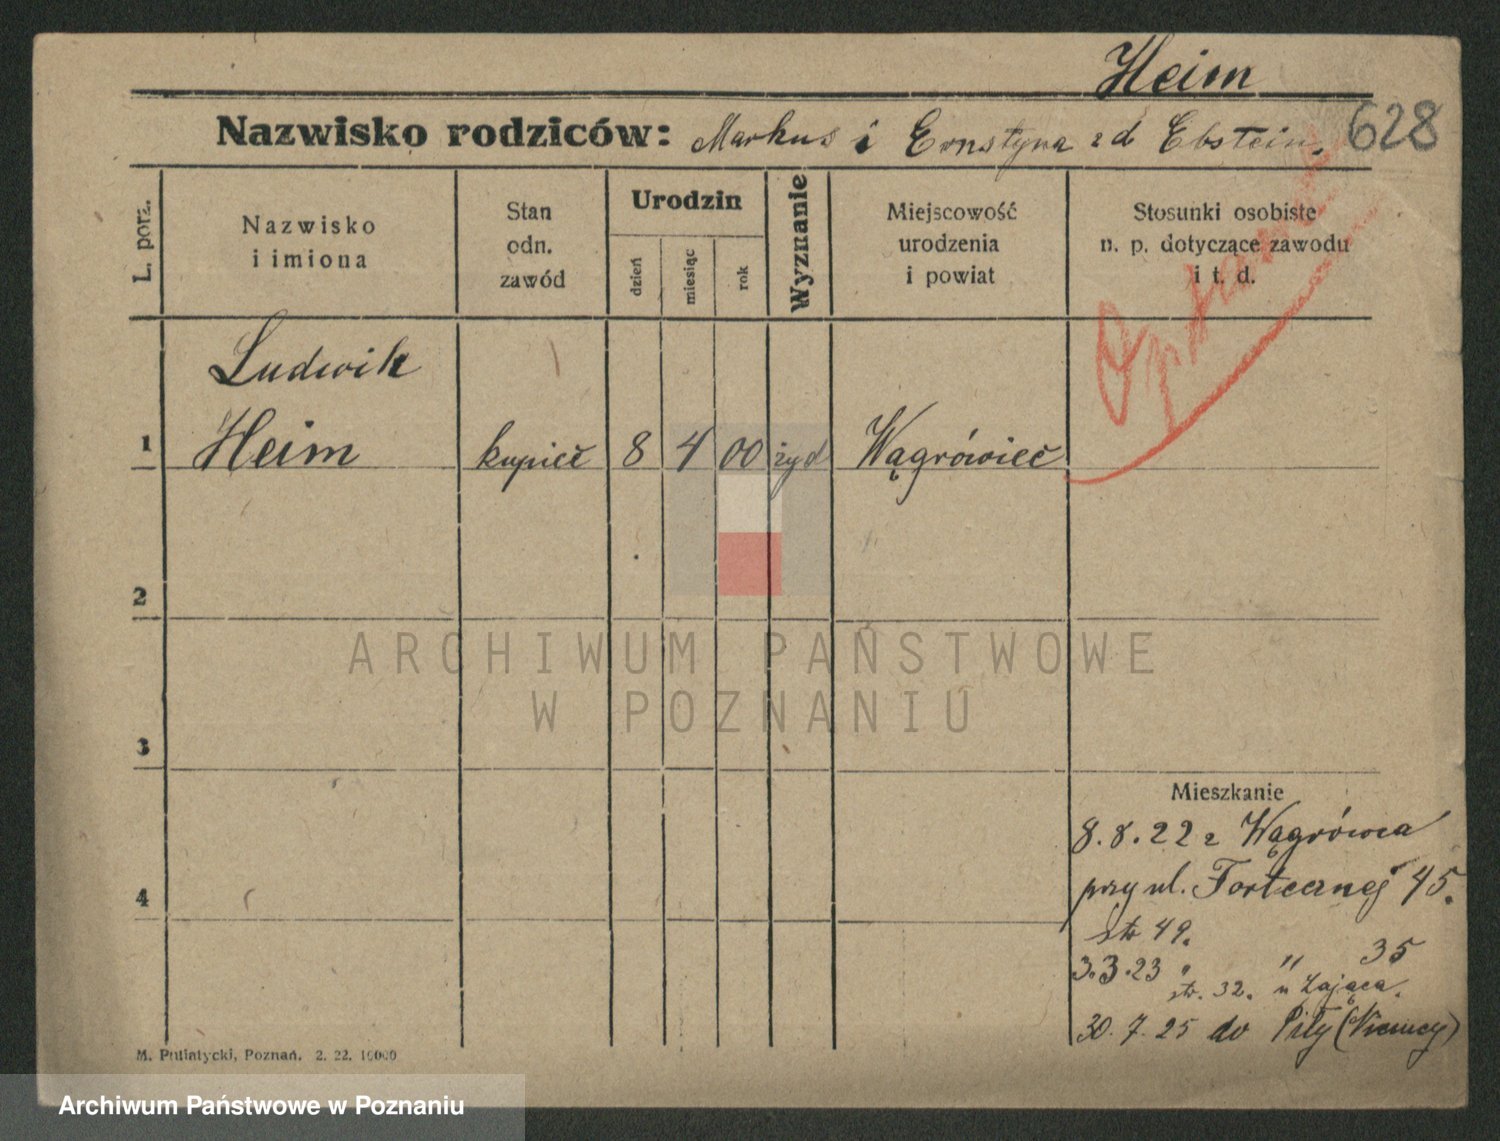 Heim
628
Nazwisko rodziców: Markus i Ernstyna zd Ebstein.
L. porz.
Nazwisko
i imiona
Stan
odn.
zawód
Urodzin
dzień
miesiąc
rok
Wyznanie
Miejscowość
urodzenia
i powiat
Stosunki osobiste
n. p. dotyczące zawodu
i t. d.
Ludwik
1 Heim kupiec 8 4 00 żyd Wągrówiec
2
3
4
Mieszkanie
8.8.22 z Wągrówca
przy ul. Fortecznej 45.
str 49.
3.3.23 " " 35
str. 32. u Zająca.
30.7.25 do Piły (Niemcy)
M. Putiatycki, Poznań. 2. 22. 10000
ARCHIWUM PAŃSTWOWE
W POZNANIU
Archiwum Państwowe w Poznaniu